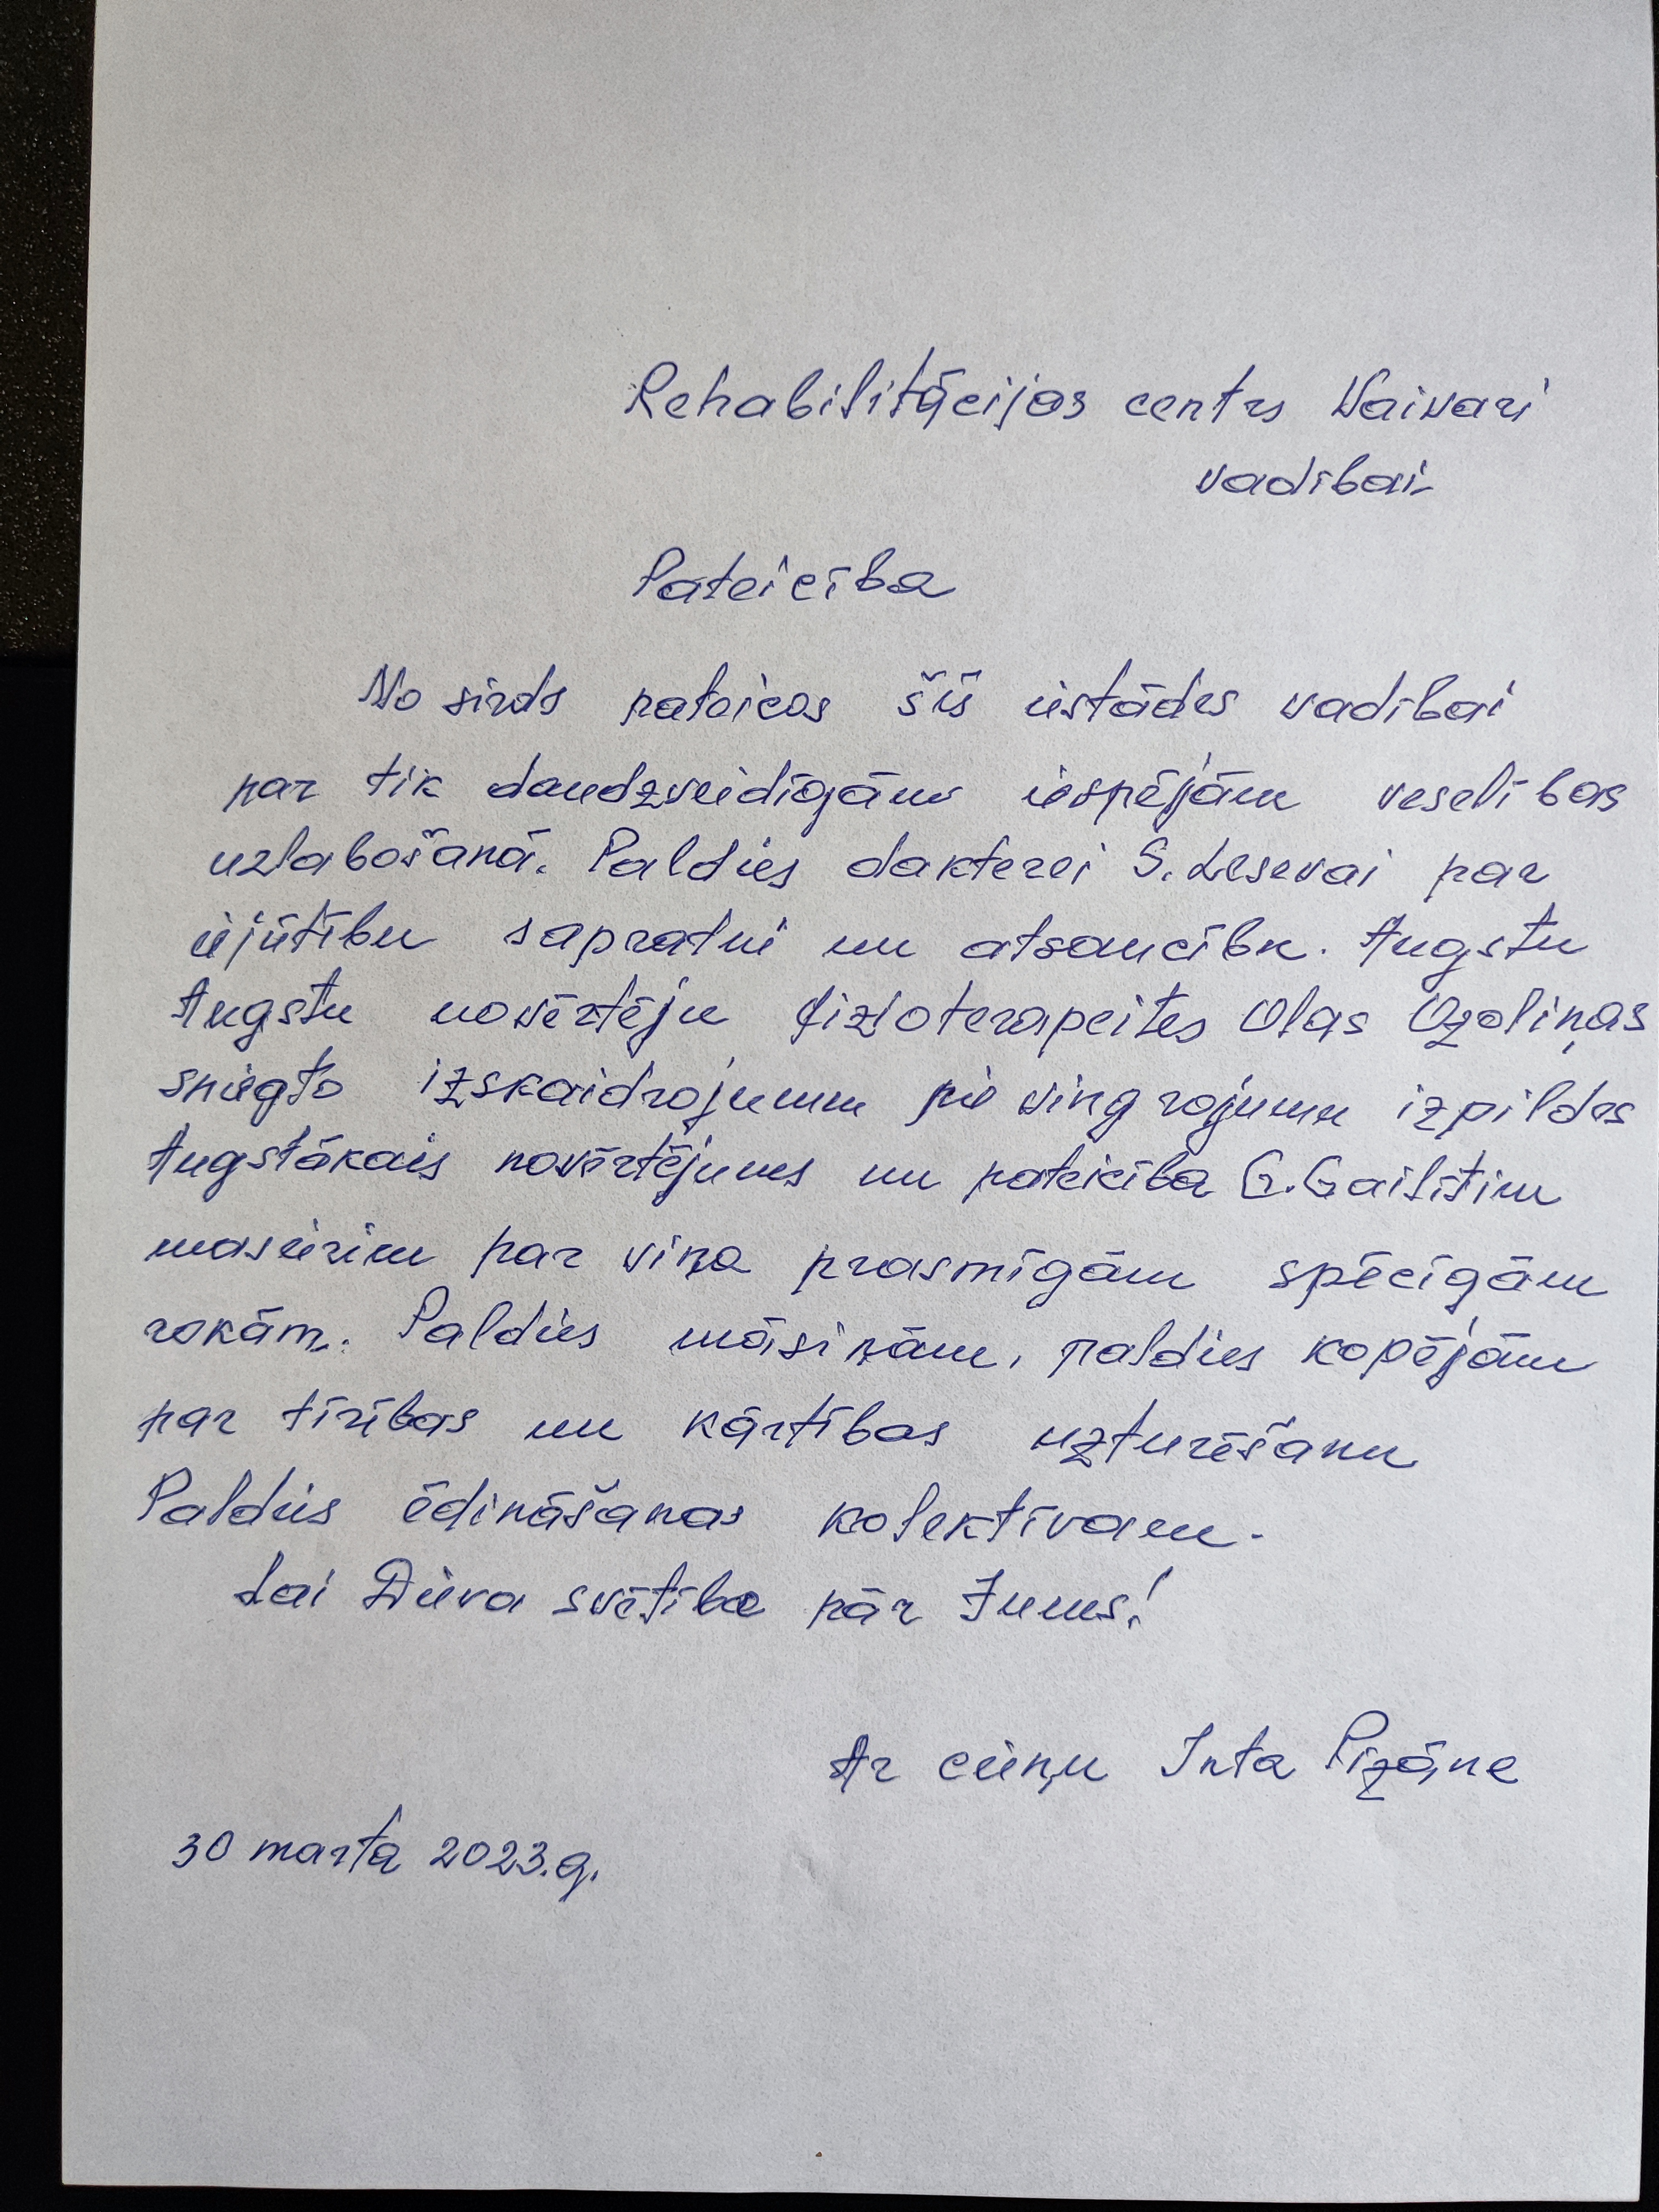 Rehabilitācijas centrs Vaivari
vadībai
Pateicība
No sirds pateicos šīs iestādes vadībai
par tik daudzveidīgām iespējām veselības
uzlabošanā. Paldies dakterei S. Lesevai par
iejūtību sapratni un atsaucību. Augstu
Augstu novērtēju fizioterapeites Olas Ozoliņas
sniegto izskaidrojumu pie vingrojumu izpildes
Augstākais novērtējums un pateicība G. Gailītim
masierim par viņa prasmīgām spēcīgām
rokām. Paldies māsiņām, paldies kopējām
par tīrības un kārtības uzturēšanu
Paldies ēdināšanas kolektīvam.
Lai Dieva svētība pār Jums!
Ar cieņu Inta Pizāne
30 marta 2023.g.